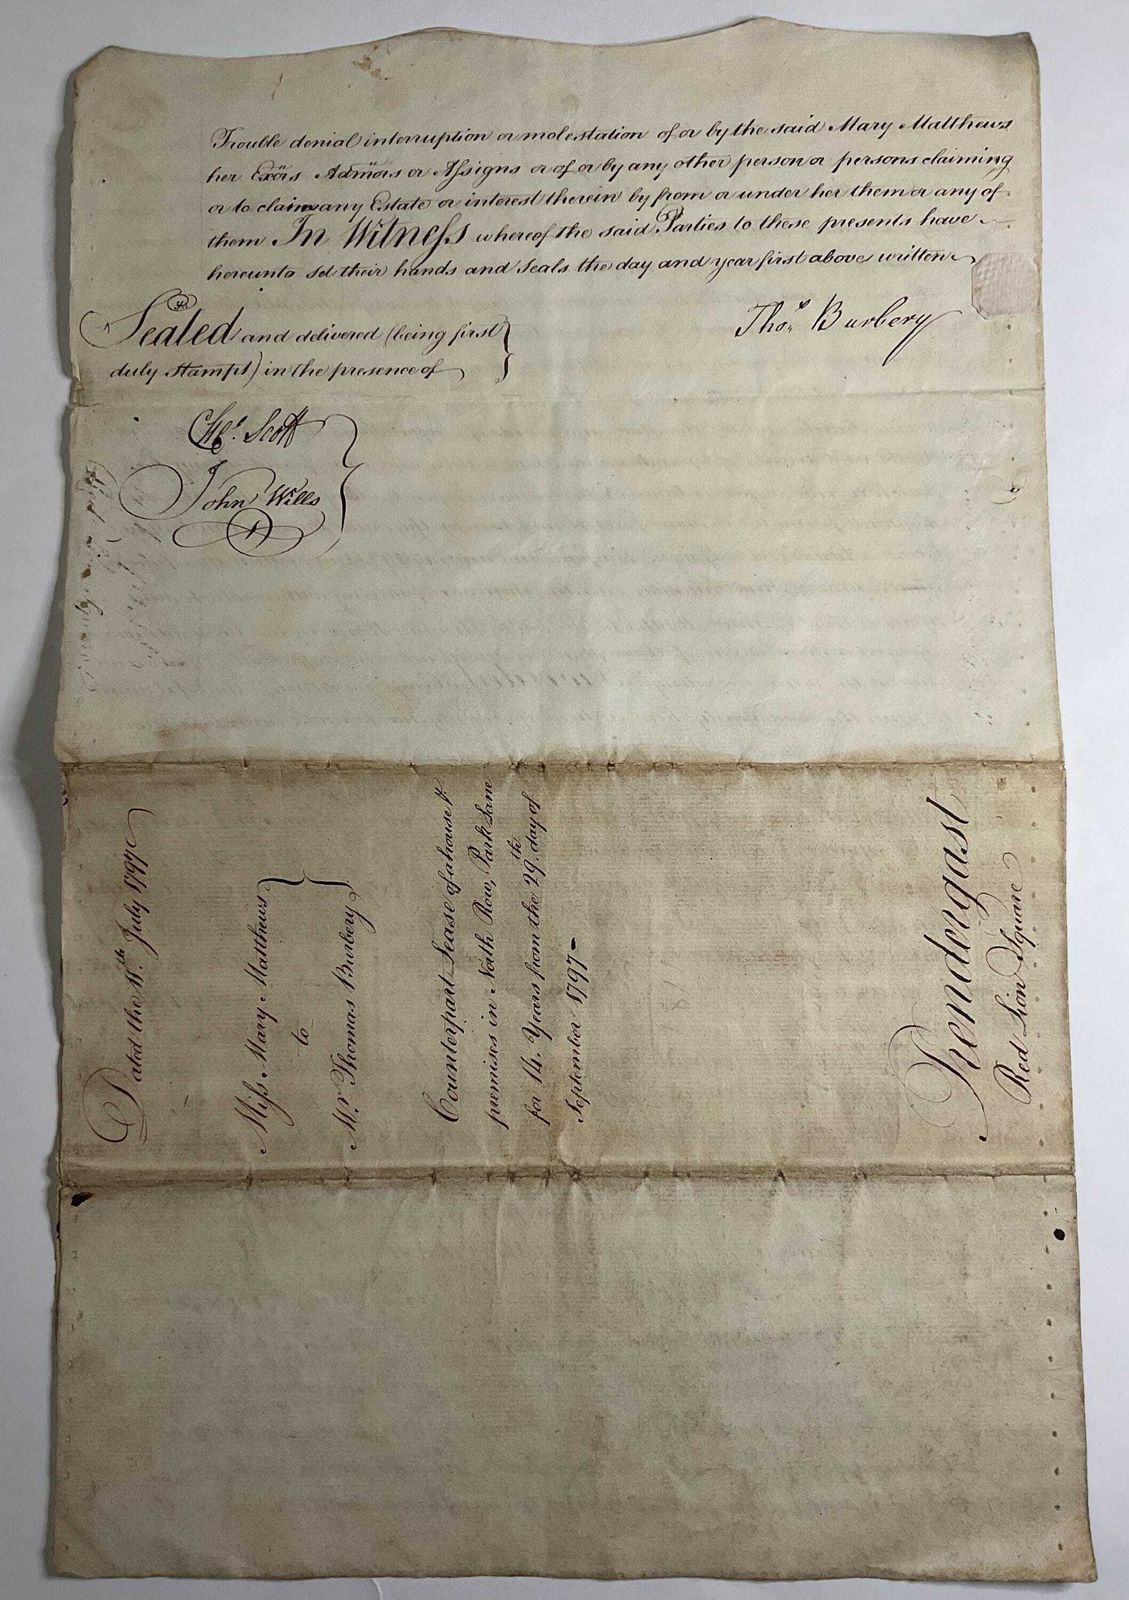 Trouble denial interruption or molestation of or by the said Mary Matthews
her Exōrs Adm̄ors or Assigns or of or by any other person or persons claiming
or to claim any Estate or interest therein by from or under her them or any of
them In Witness whereof the said Parties to these presents have
hereunto set their hands and Seals the day and year first above written
Sealed and delivered (being first
duly stampt) in the presence of
Thoˢ. Burbery
Chˢ. Scott
John Wills
Dated the 11.th July 1797
Miss Mary Matthews
to
Mr Thomas Burbery
Counterpart Lease of a house &
premises in North Row, Park Lane
for 14. Years from the 29.th day of
September 1797 -
Prendergast
Red Lion Square